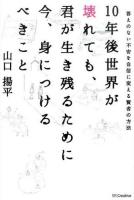 答えのない不安を自信に変える賢者の方法
10年後世界が
壊れても、
君が生き残るために
今、身につける
べきこと
山口揚平